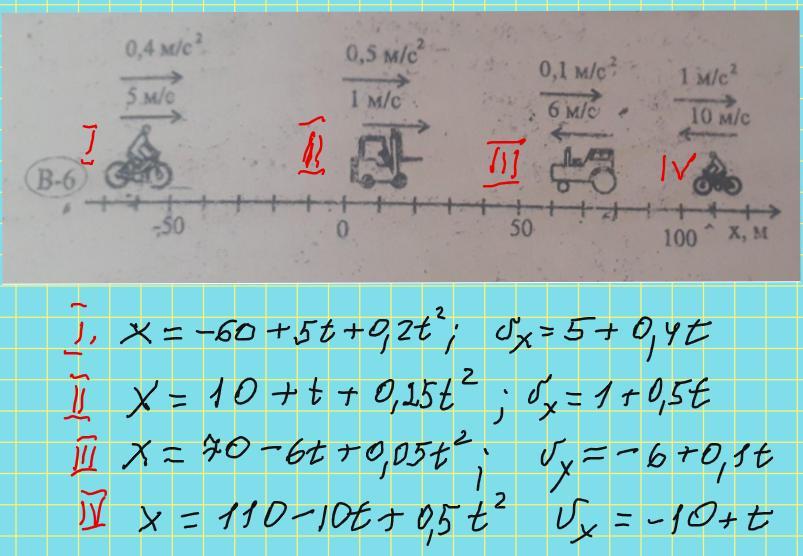 0,4 м/с² 0,5 м/с² 0,1 м/с² 1 м/с²
5 м/с 1 м/с 6 м/с 10 м/с
I II III IV
В-6
-50 0 50 100 х, м
I. x = -60 + 5t + 0,2t²; υₓ = 5 + 0,4t
II x = 10 + t + 0,25t²; υₓ = 1 + 0,5t
III x = 70 - 6t + 0,05t²; υₓ = -6 + 0,1t
IV x = 110 - 10t + 0,5t² υₓ = -10 + t